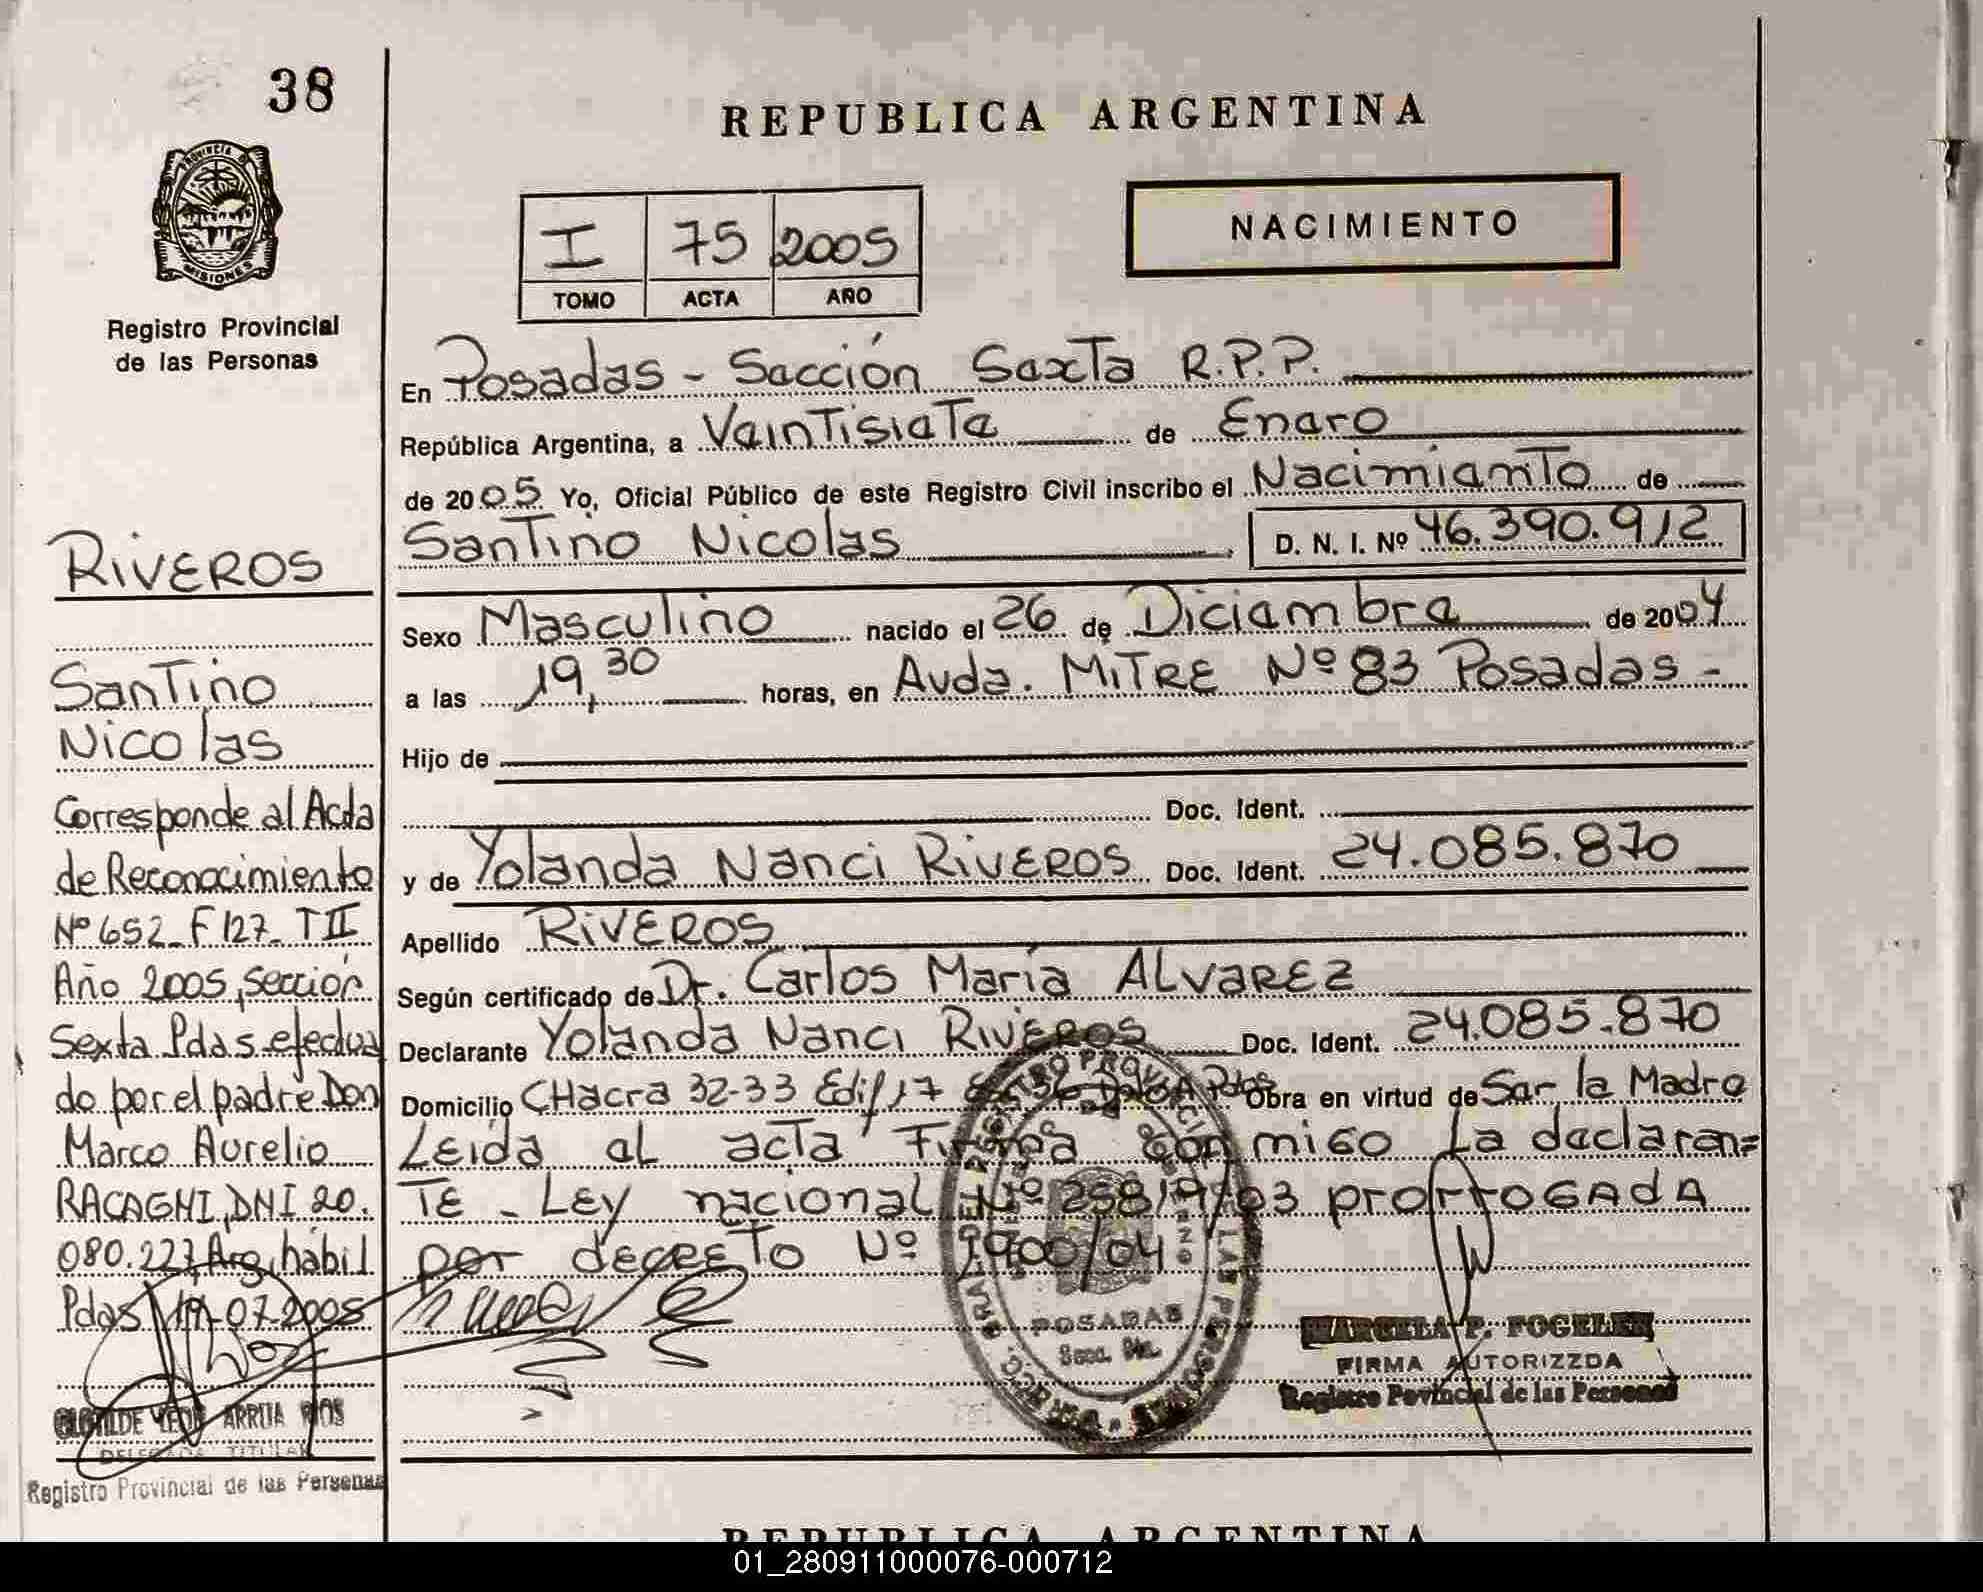 38
REPUBLICA ARGENTINA
PROVINCIA DE
MISIONES
Registro Provincial
de las Personas
I 75 2005
TOMO ACTA AÑO
NACIMIENTO
En Posadas - Sección Sexta R.P.P.
República Argentina, a Veintisiete de Enero
de 2005 Yo, Oficial Público de este Registro Civil inscribo el Nacimiento de
Santino Nicolas D. N. I. Nº 46.390.912
Sexo Masculino nacido el 26 de Diciembre de 2004
a las 19,30 horas, en Avda. MITRE Nº 83 Posadas -
Hijo de
Doc. Ident.
y de Yolanda Nanci RIVEROS Doc. Ident. 24.085.870
Apellido RIVEROS
Según certificado de Dr. Carlos María ALVAREZ
Declarante Yolanda Nanci RIVEROS Doc. Ident. 24.085.870
Domicilio CHacra 32-33 Edif 17 Pdas Obra en virtud de Ser la Madre
Leida el acta Firma conmigo La declaran=
TE - Ley nacional Nº 25819/03 prorrogada
por decreto Nº 1900/04
RIVEROS
Santino
Nicolas
Corresponde al Acta
de Reconocimiento
Nº 652 - F 127 - T II
Año 2005, sección
Sexta Pdas efectua
do por el padre Don
Marco Aurelio
RACAGNI, DNI 20.
080.227, Arg, hábil
Pdas 19-07-2005
CLOTILDE ARRUA RIOS
DELEGADA TITULAR
Registro Provincial de las Personas
POSADAS
Secc. 6ta.
MARCELA P. FOGELER
FIRMA AUTORIZZDA
Registro Povincial de las Personas
REPUBLICA ARGENTINA
01_280911000076-000712